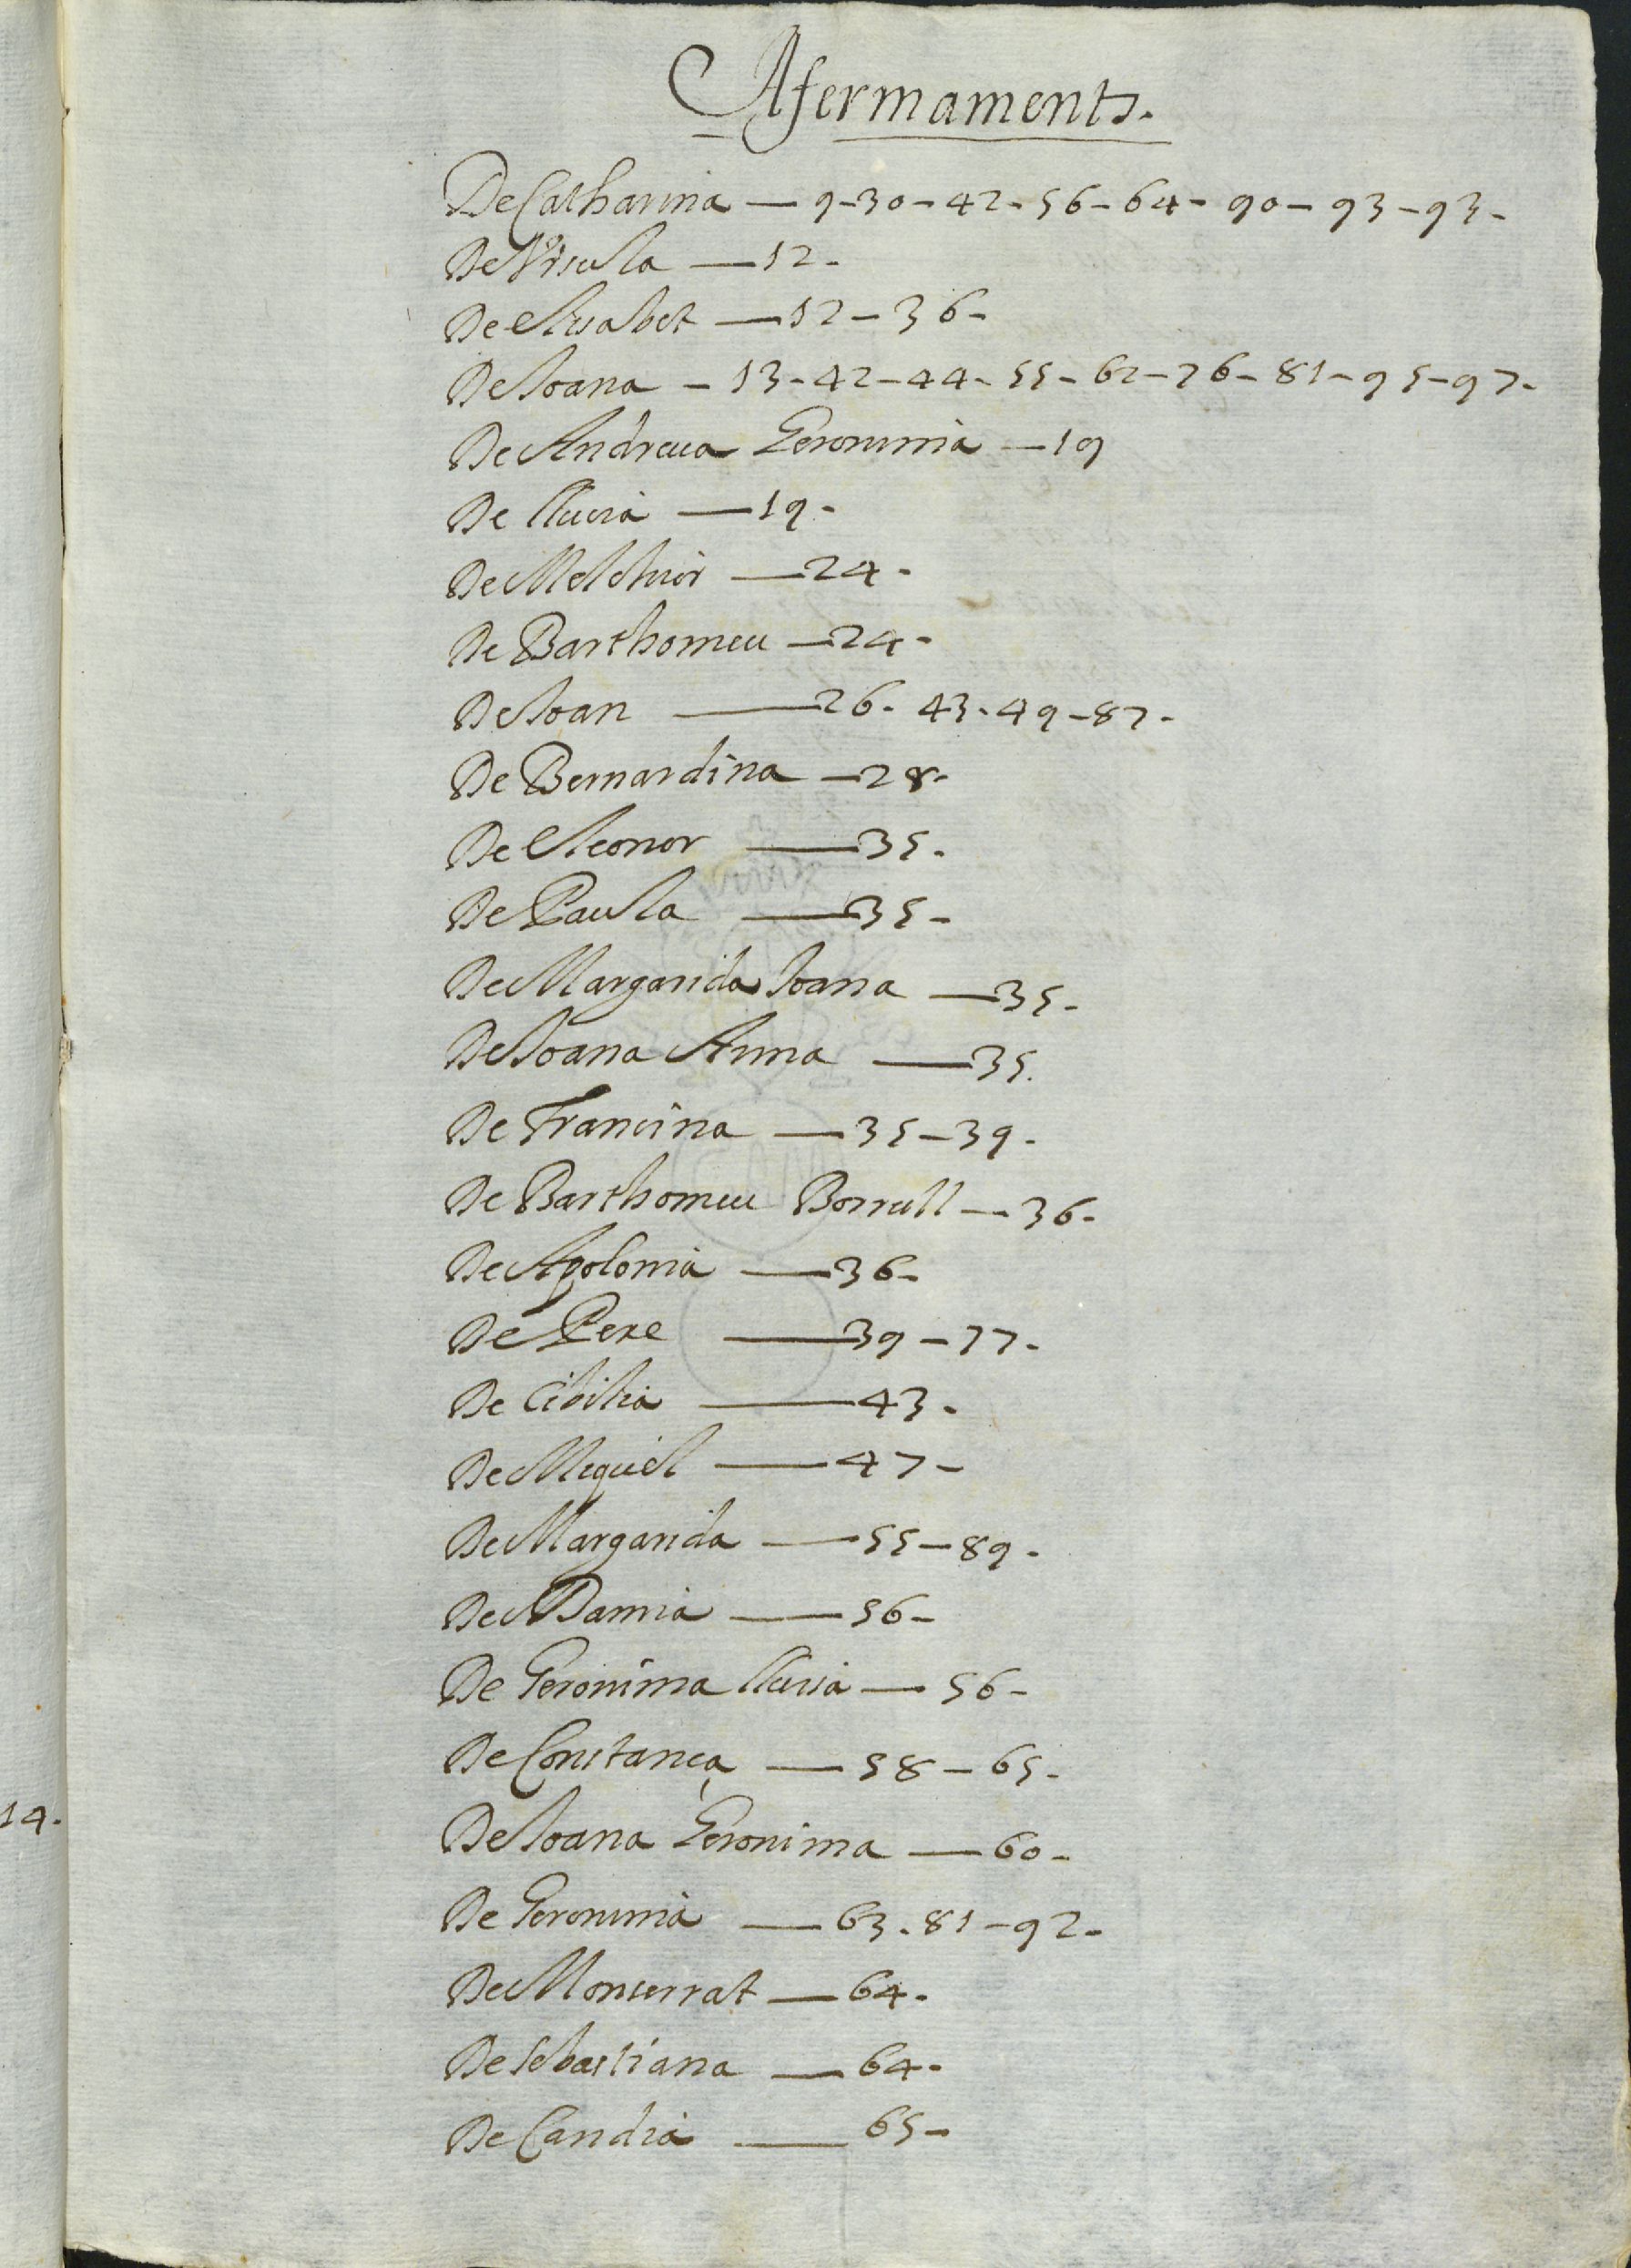 Afermaments.
De Catharina — 9-30-42-56-64-90-93-93-
De Vrsula — 12-
De Elisabet — 12-36-
De Ioana - 13-42-44-55-62-76-81-95-97-
De Andreua Geronima — 19
De Llucia — 19-
De Melchior — 24-
De Barthomeu — 24-
De Ioan — 26-43-49-87-
De Bernardina — 28-
De Eleonor — 35-
De Paula — 35-
De Margarida Ioana — 35-
De Ioana Anna — 35.
De Francina — 35-39-
De Barthomeu Borrull — 36-
De Apolonia — 36-
De Pere — 39-77-
De Cibilia — 43-
De Miquel — 47-
De Margarida — 55-89-
De Damia — 56-
De Geronima Llucia — 56-
De Constança — 58-65-
14.
De Ioana Geronima — 60-
De Geronima — 63-81-92-
De Monserrat — 64-
De Sebastiana — 64-
De Candia — 65-